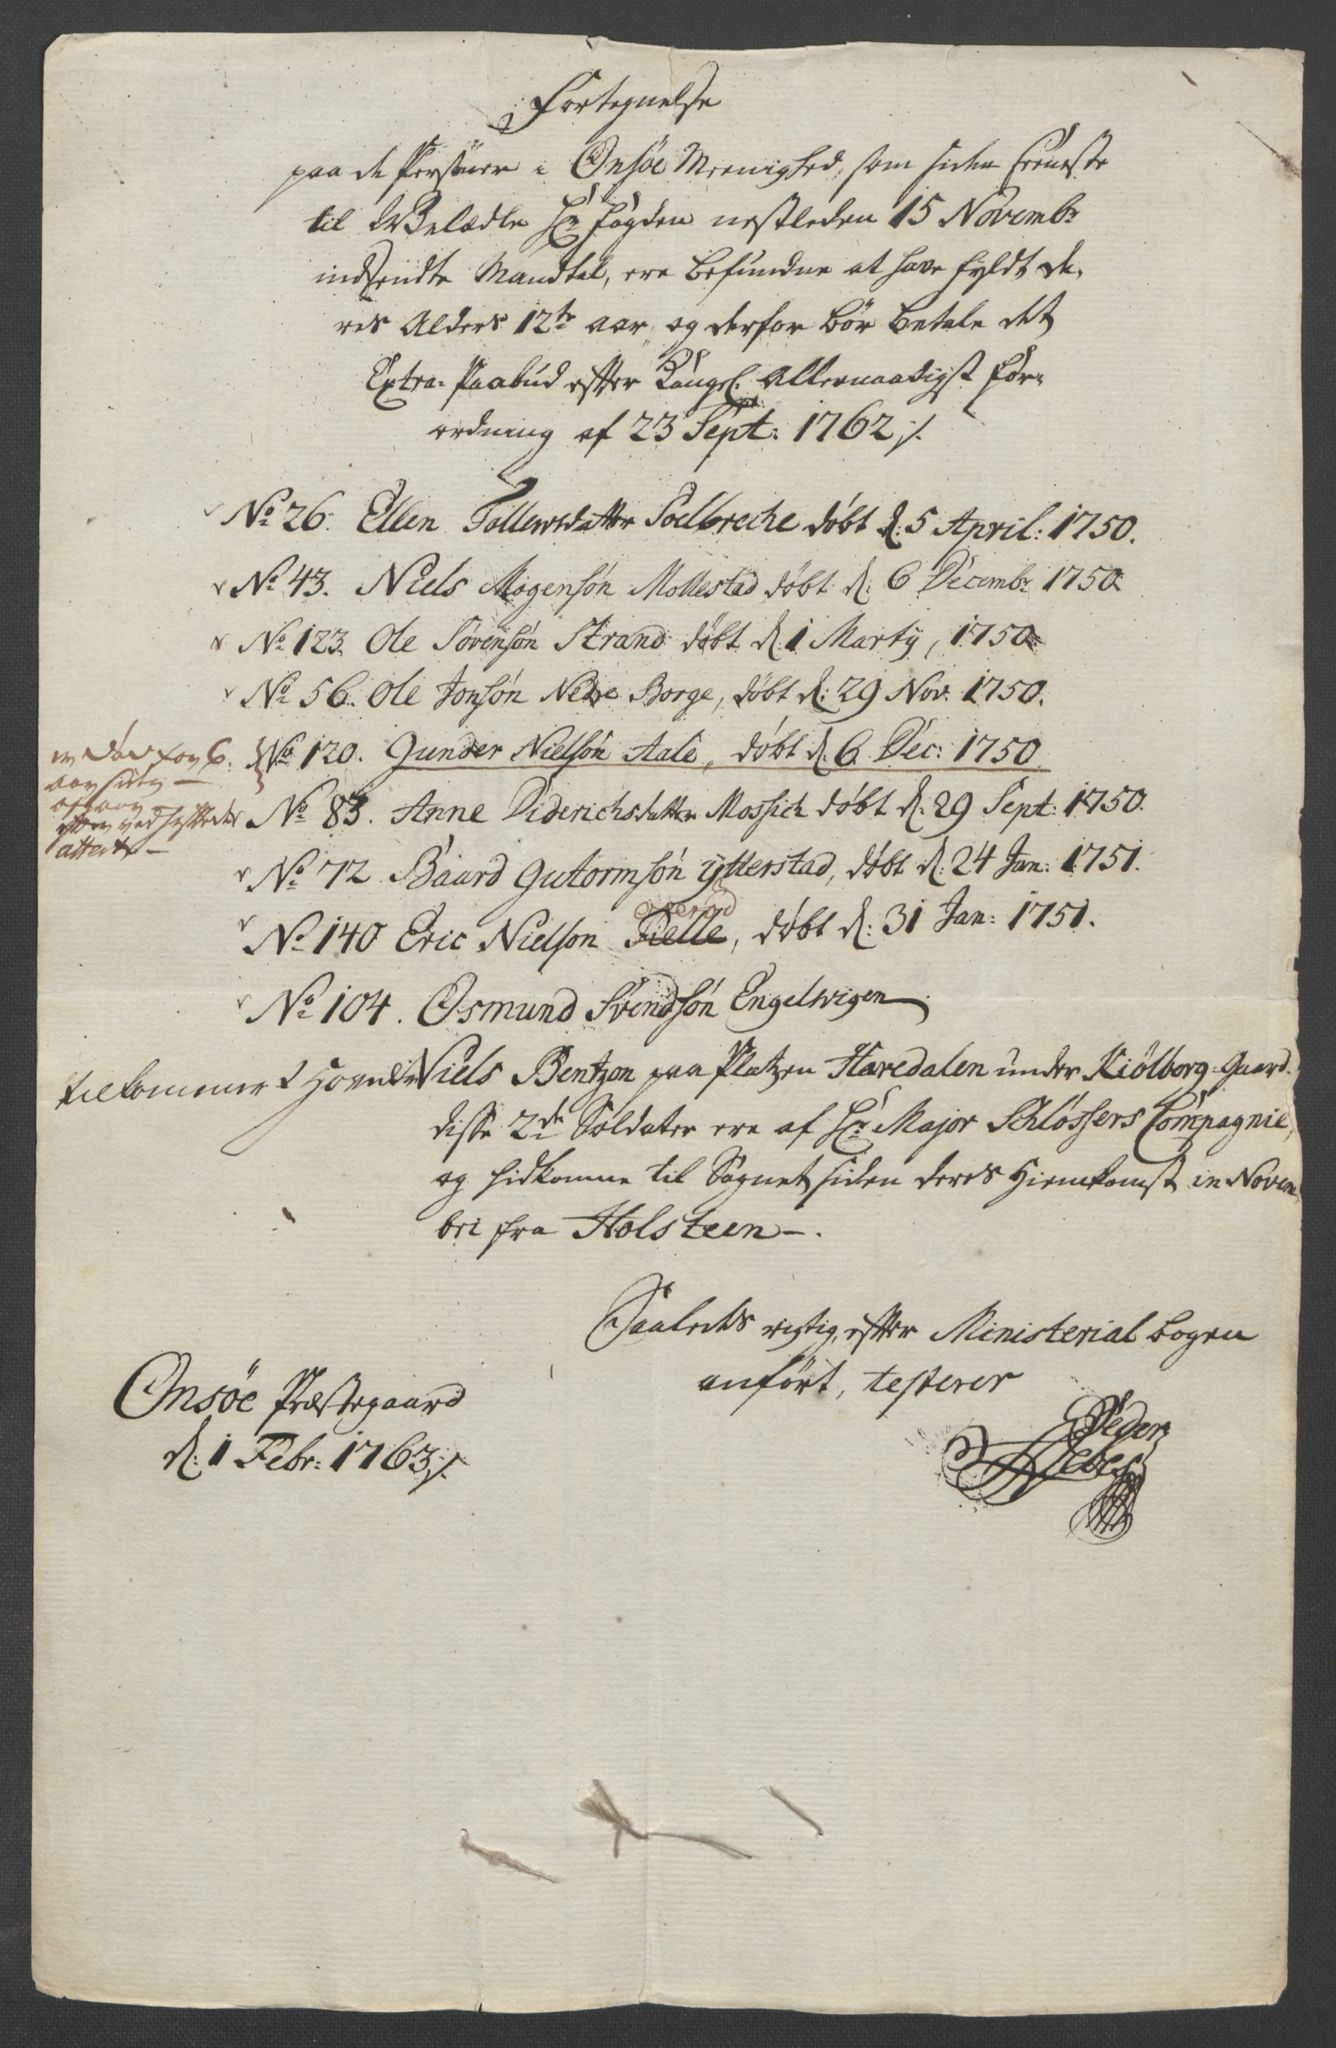 Fortegnelse
paa de Persöner i Onsöe Meenighed, som siden
til Velædle Hr Fogden nestleden 15 Novembr
indsendte Mandtal, ere befundne at have fyldt de-
res Alders 12te aar, og derfor bör betale det
Extra-Paabud efter Kongel. Allernaadigst For-
ordning af 23 Sept: 1762 ./.
No 26. Ellen Tollewsdatter Soelbreche döbt d: 5 April: 1750.
No 43. Niels Mogensön Mollestad döbt d: 6 Decembr 1750
No 123 Ole Sörensön Strand döbt d 1 Martij, 1750
No 56. Ole Jonsön Nedre Borge, döbt d: 29 Nov: 1750.
No 120. Gunder Nielsön Aale, döbt d 6 Dec: 1750
er död for 6.
aar siden
efter vedheftede
attest
No 83. Anne Diderichsdatter Mossich döbt d. 29 Sept: 1750
No 72 Baard Gutormsön Ytterstad, döbt d. 24 Jan: 1751.
ogeröd
No 140 Eric Nielsön Fielle, döbt d: 31 Jan: 1751.
No 104. Osmund Svendsön Engelwigen
tilkommer Niels Bentzon paa Platzen Haredalen under Kiölborg-Gaard.
disse 2de Soldater ere af Hr Major Schlössers Compagnie,
og hidkomne til Sognet siden deres Hiemkomst in Novem
bri fra Holsteen -.
Saaledes rigtig, efter Ministerial bogen
anfört, testerer
Onsöe Præstegaard
d: 1 Febr: 1763 ./.
Peder